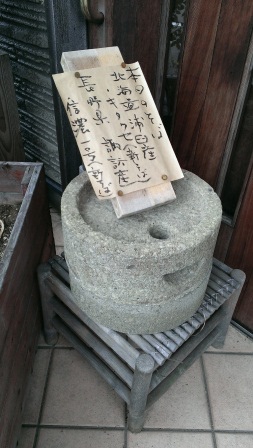 本日のそば
北海道浦臼産
キタワセ(新そば)
長野県 諏訪産
信濃一号(新そば)